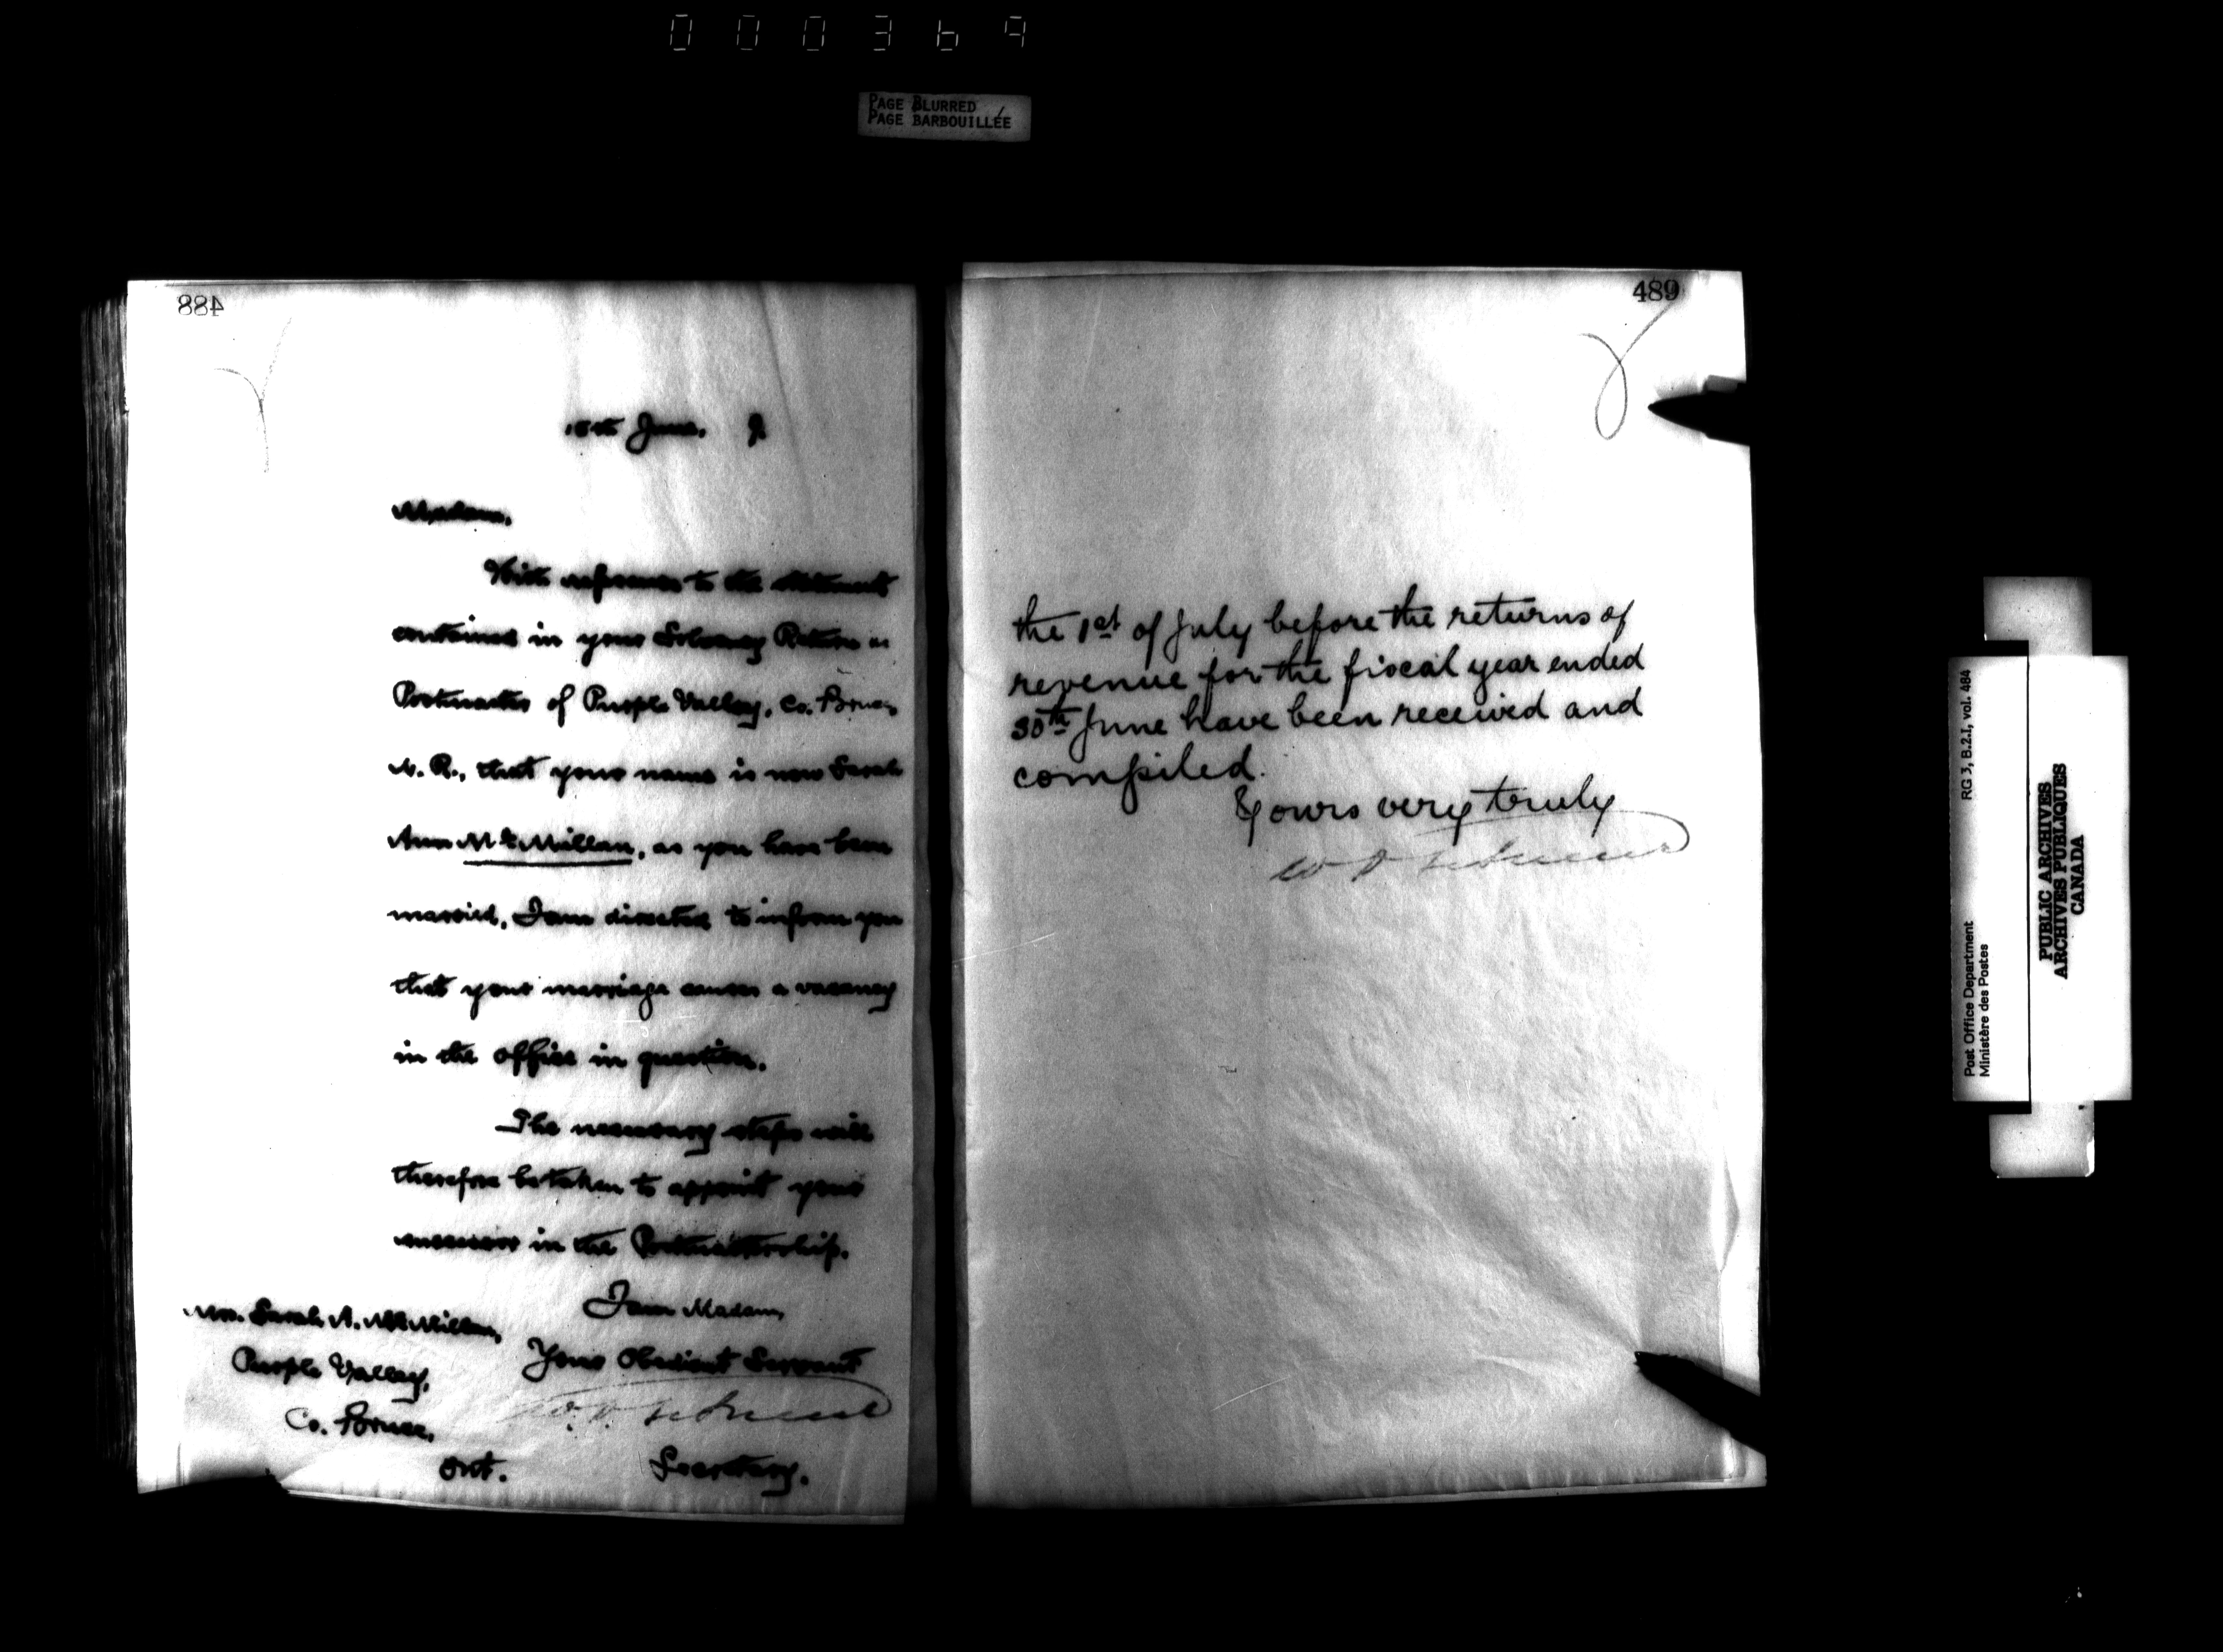 000369
PAGE BLURRED
PAGE BARBOUILLÉE
488
June. 9
Madam,
With reference to the statement
contained in your Solvency Return as
Postmaster of Purple Valley, Co. Bruce,
N. R., that your name is now Sarah
Ann McMillan, as you have been
married, I am directed to inform you
that your marriage causes a vacancy
in the office in question.
The necessary steps will
therefore be taken to appoint your
successor in the Postmastership.
I am Madam,
Your Obedient Servant
Secretary.
Mrs. Sarah A. McMillan,
Purple Valley,
Co. Bruce,
Ont.
489
the 1st of July before the returns of
revenue for the fiscal year ended
30th June have been received and
compiled.
Yours very truly
Post Office Department
Ministère des Postes
RG 3, B.2.I, vol. 484
PUBLIC ARCHIVES
ARCHIVES PUBLIQUES
CANADA